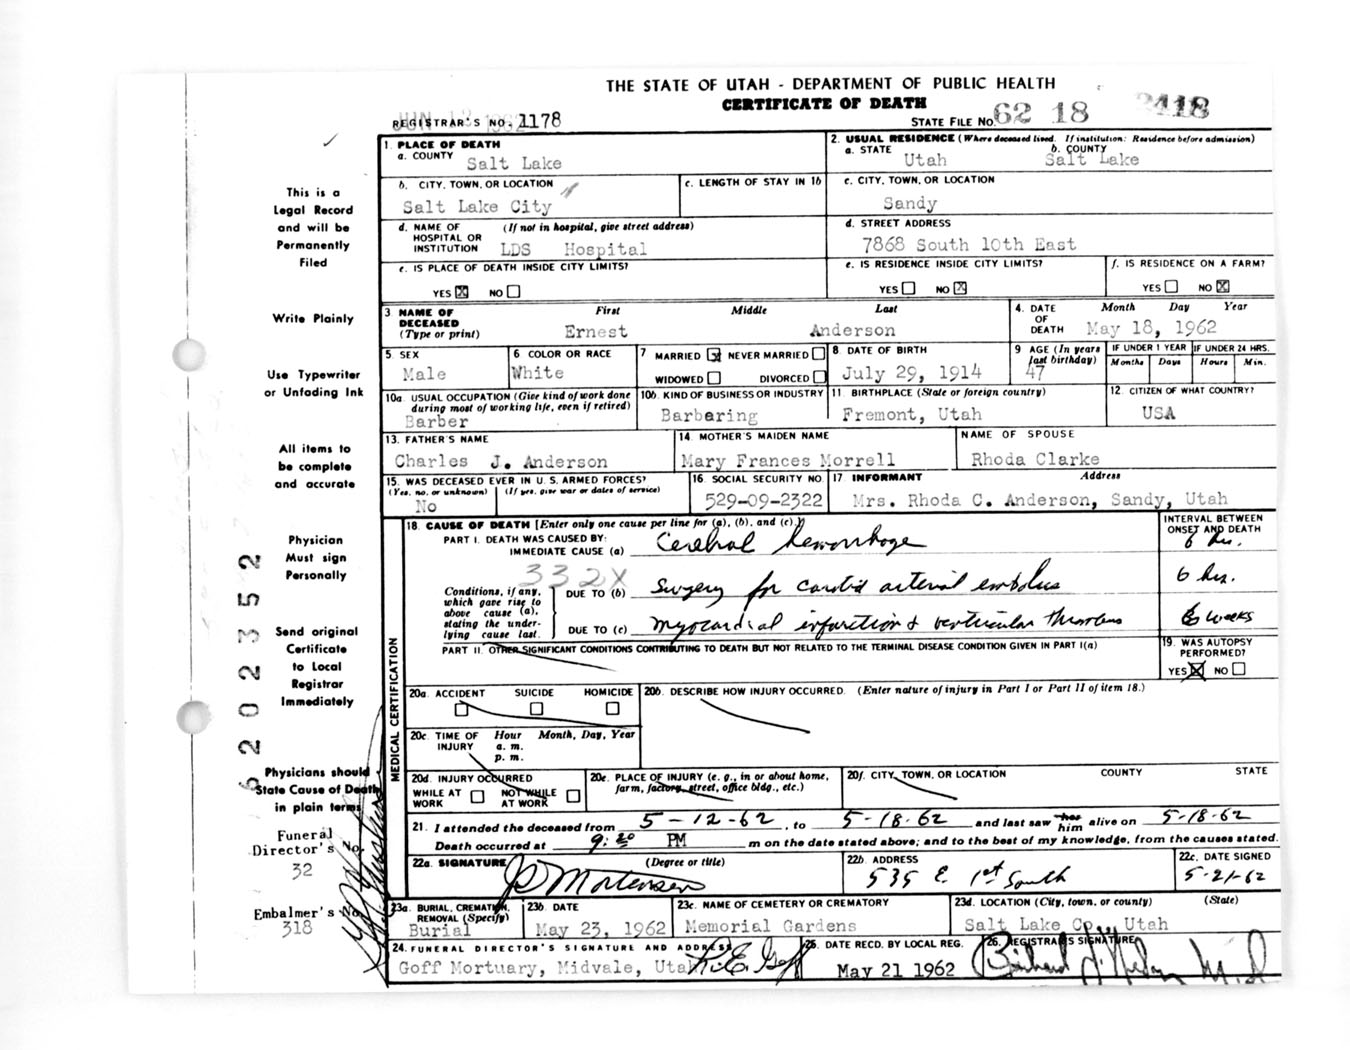 THE STATE OF UTAH - DEPARTMENT OF PUBLIC HEALTH
CERTIFICATE OF DEATH
REGISTRAR'S NO. 1178
STATE FILE NO. 62 18 2418
1. PLACE OF DEATH
a. COUNTY Salt Lake
2. USUAL RESIDENCE (Where deceased lived. If institution: Residence before admission)
a. STATE Utah b. COUNTY Salt Lake
b. CITY, TOWN, OR LOCATION Salt Lake City
c. LENGTH OF STAY IN 1b
c. CITY, TOWN, OR LOCATION Sandy
d. NAME OF HOSPITAL OR INSTITUTION (If not in hospital, give street address) LDS Hospital
d. STREET ADDRESS 7868 South 10th East
e. IS PLACE OF DEATH INSIDE CITY LIMITS?
YES ☒ NO ☐
e. IS RESIDENCE INSIDE CITY LIMITS?
YES ☐ NO ☒
f. IS RESIDENCE ON A FARM?
YES ☐ NO ☒
3. NAME OF DECEASED (Type or print) First Middle Last
Ernest Anderson
4. DATE OF DEATH Month Day Year
May 18, 1962
5. SEX Male
6 COLOR OR RACE White
7 MARRIED ☒ NEVER MARRIED ☐
WIDOWED ☐ DIVORCED ☐
8. DATE OF BIRTH July 29, 1914
9 AGE (In years last birthday) 47
IF UNDER 1 YEAR Months Days
IF UNDER 24 HRS. Hours Min.
10a. USUAL OCCUPATION (Give kind of work done during most of working life, even if retired)
Barber
10b. KIND OF BUSINESS OR INDUSTRY Barbering
11. BIRTHPLACE (State or foreign country) Fremont, Utah
12. CITIZEN OF WHAT COUNTRY? USA
13. FATHER'S NAME Charles J. Anderson
14. MOTHER'S MAIDEN NAME Mary Frances Morrell
NAME OF SPOUSE Rhoda Clarke
15. WAS DECEASED EVER IN U. S. ARMED FORCES?
(Yes, no, or unknown) (If yes, give war or dates of service)
No
16. SOCIAL SECURITY NO. 529-09-2322
17. INFORMANT Address
Mrs. Rhoda C. Anderson, Sandy, Utah
MEDICAL CERTIFICATION
18. CAUSE OF DEATH [Enter only one cause per line for (a), (b), and (c).]
INTERVAL BETWEEN ONSET AND DEATH
PART I. DEATH WAS CAUSED BY:
IMMEDIATE CAUSE (a) Cerebral hemorrhage 6 hrs.
332X
Conditions, if any, which gave rise to above cause (a), stating the underlying cause last.
DUE TO (b) Surgery for carotid arterial embolus 6 hrs.
DUE TO (c) myocardial infarction & ventricular thrombus 6 weeks
PART II. OTHER SIGNIFICANT CONDITIONS CONTRIBUTING TO DEATH BUT NOT RELATED TO THE TERMINAL DISEASE CONDITION GIVEN IN PART I(a)
19. WAS AUTOPSY PERFORMED?
YES ☒ NO ☐
20a. ACCIDENT SUICIDE HOMICIDE
20b. DESCRIBE HOW INJURY OCCURRED. (Enter nature of injury in Part I or Part II of item 18.)
20c. TIME OF INJURY Hour a. m. p. m. Month, Day, Year
20d. INJURY OCCURRED
WHILE AT WORK ☐ NOT WHILE AT WORK ☐
20e. PLACE OF INJURY (e. g., in or about home, farm, factory, street, office bldg., etc.)
20f. CITY, TOWN, OR LOCATION COUNTY STATE
21. I attended the deceased from 5-12-62, to 5-18-62 and last saw her him alive on 5-18-62
Death occurred at 9:20 PM m on the date stated above; and to the best of my knowledge, from the causes stated.
22a. SIGNATURE (Degree or title)
J D Mortensen
22b. ADDRESS 535 E. 1st South
22c. DATE SIGNED 5-21-62
23a. BURIAL, CREMATION, REMOVAL (Specify) Burial
23b. DATE May 23, 1962
23c. NAME OF CEMETERY OR CREMATORY Memorial Gardens
23d. LOCATION (City, town, or county) (State)
Salt Lake Co., Utah
24. FUNERAL DIRECTOR'S SIGNATURE AND ADDRESS
Goff Mortuary, Midvale, Utah
25. DATE RECD. BY LOCAL REG. May 21 1962
26. REGISTRAR'S SIGNATURE
This is a
Legal Record
and will be
Permanently
Filed
Write Plainly
Use Typewriter
or Unfading Ink
All items to
be complete
and accurate
Physician
Must sign
Personally
Send original
Certificate
to Local
Registrar
Immediately
Physicians should
State Cause of Death
in plain terms
Funeral
Director's No.
32
Embalmer's No.
318